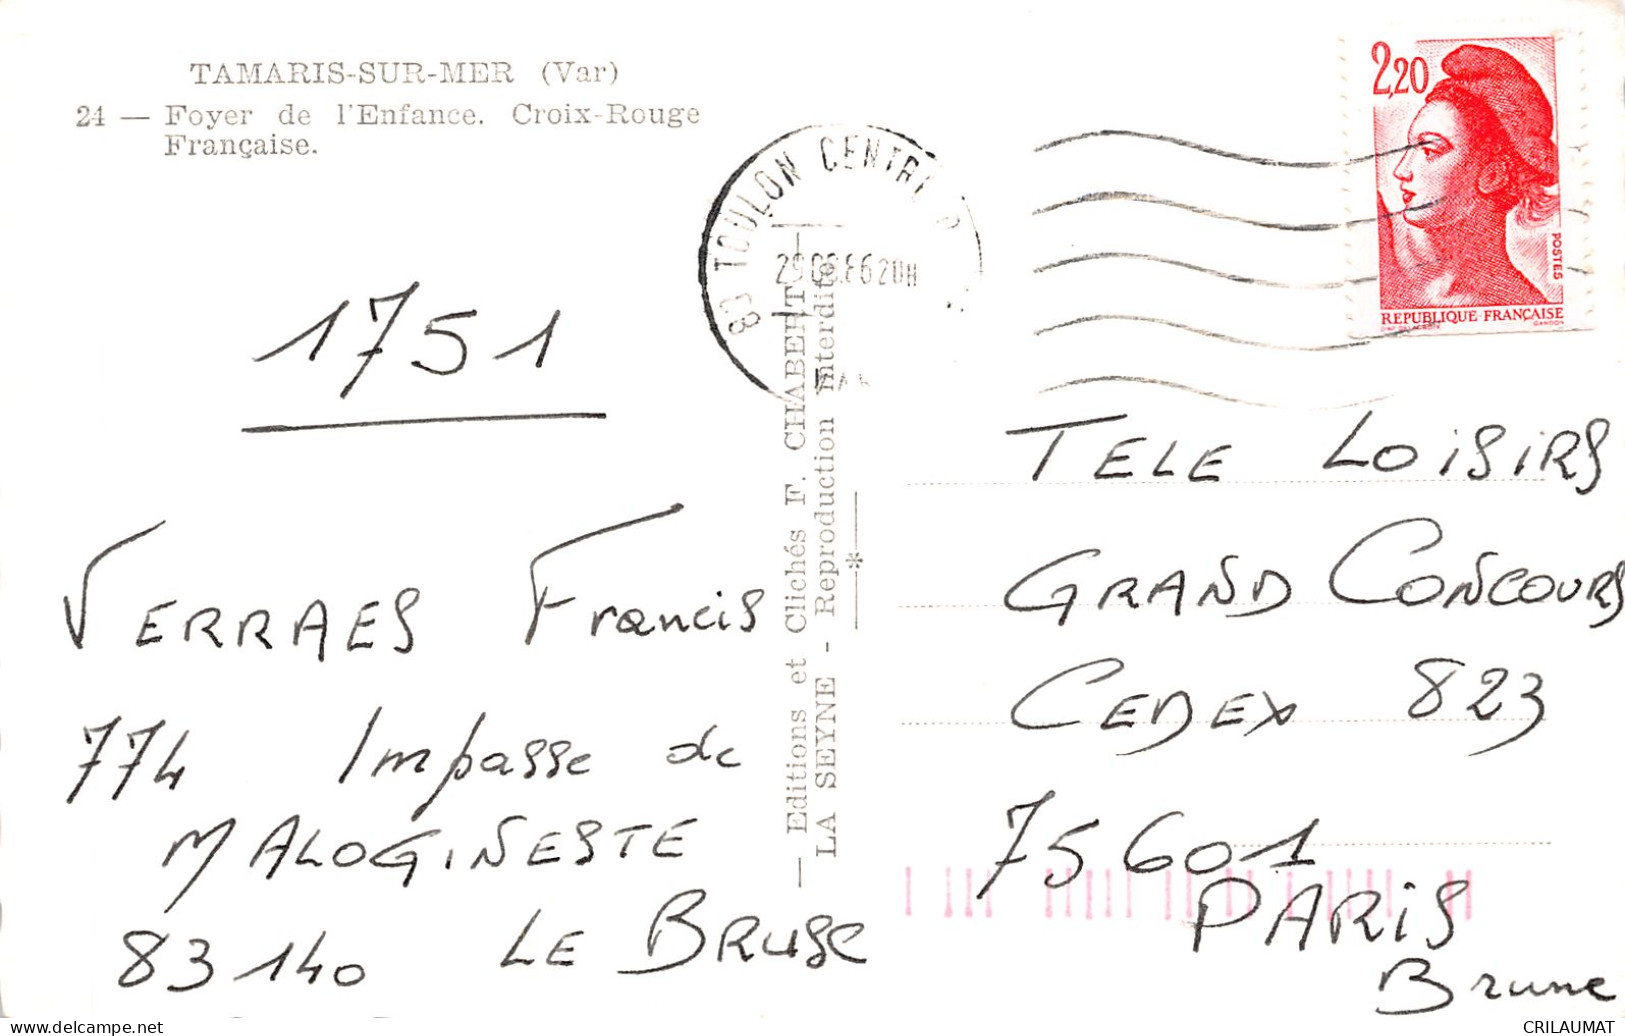 TAMARIS-SUR-MER (Var)
24 — Foyer de l'Enfance. Croix-Rouge
Française.
83 TOULON CENTRAL
20H
2,20
POSTES
REPUBLIQUE FRANÇAISE
GANDON
1751
VERRAES Francis
774 Impasse de
MALOGINESTE
83140 LE BRUSC
— Editions et Clichés F. CHABERT —
LA SEYNE - Reproduction interdite
TELE LOISIRS
GRAND CONCOURS
CEDEX 823
75601
PARIS
Brune
CRILAUMAT